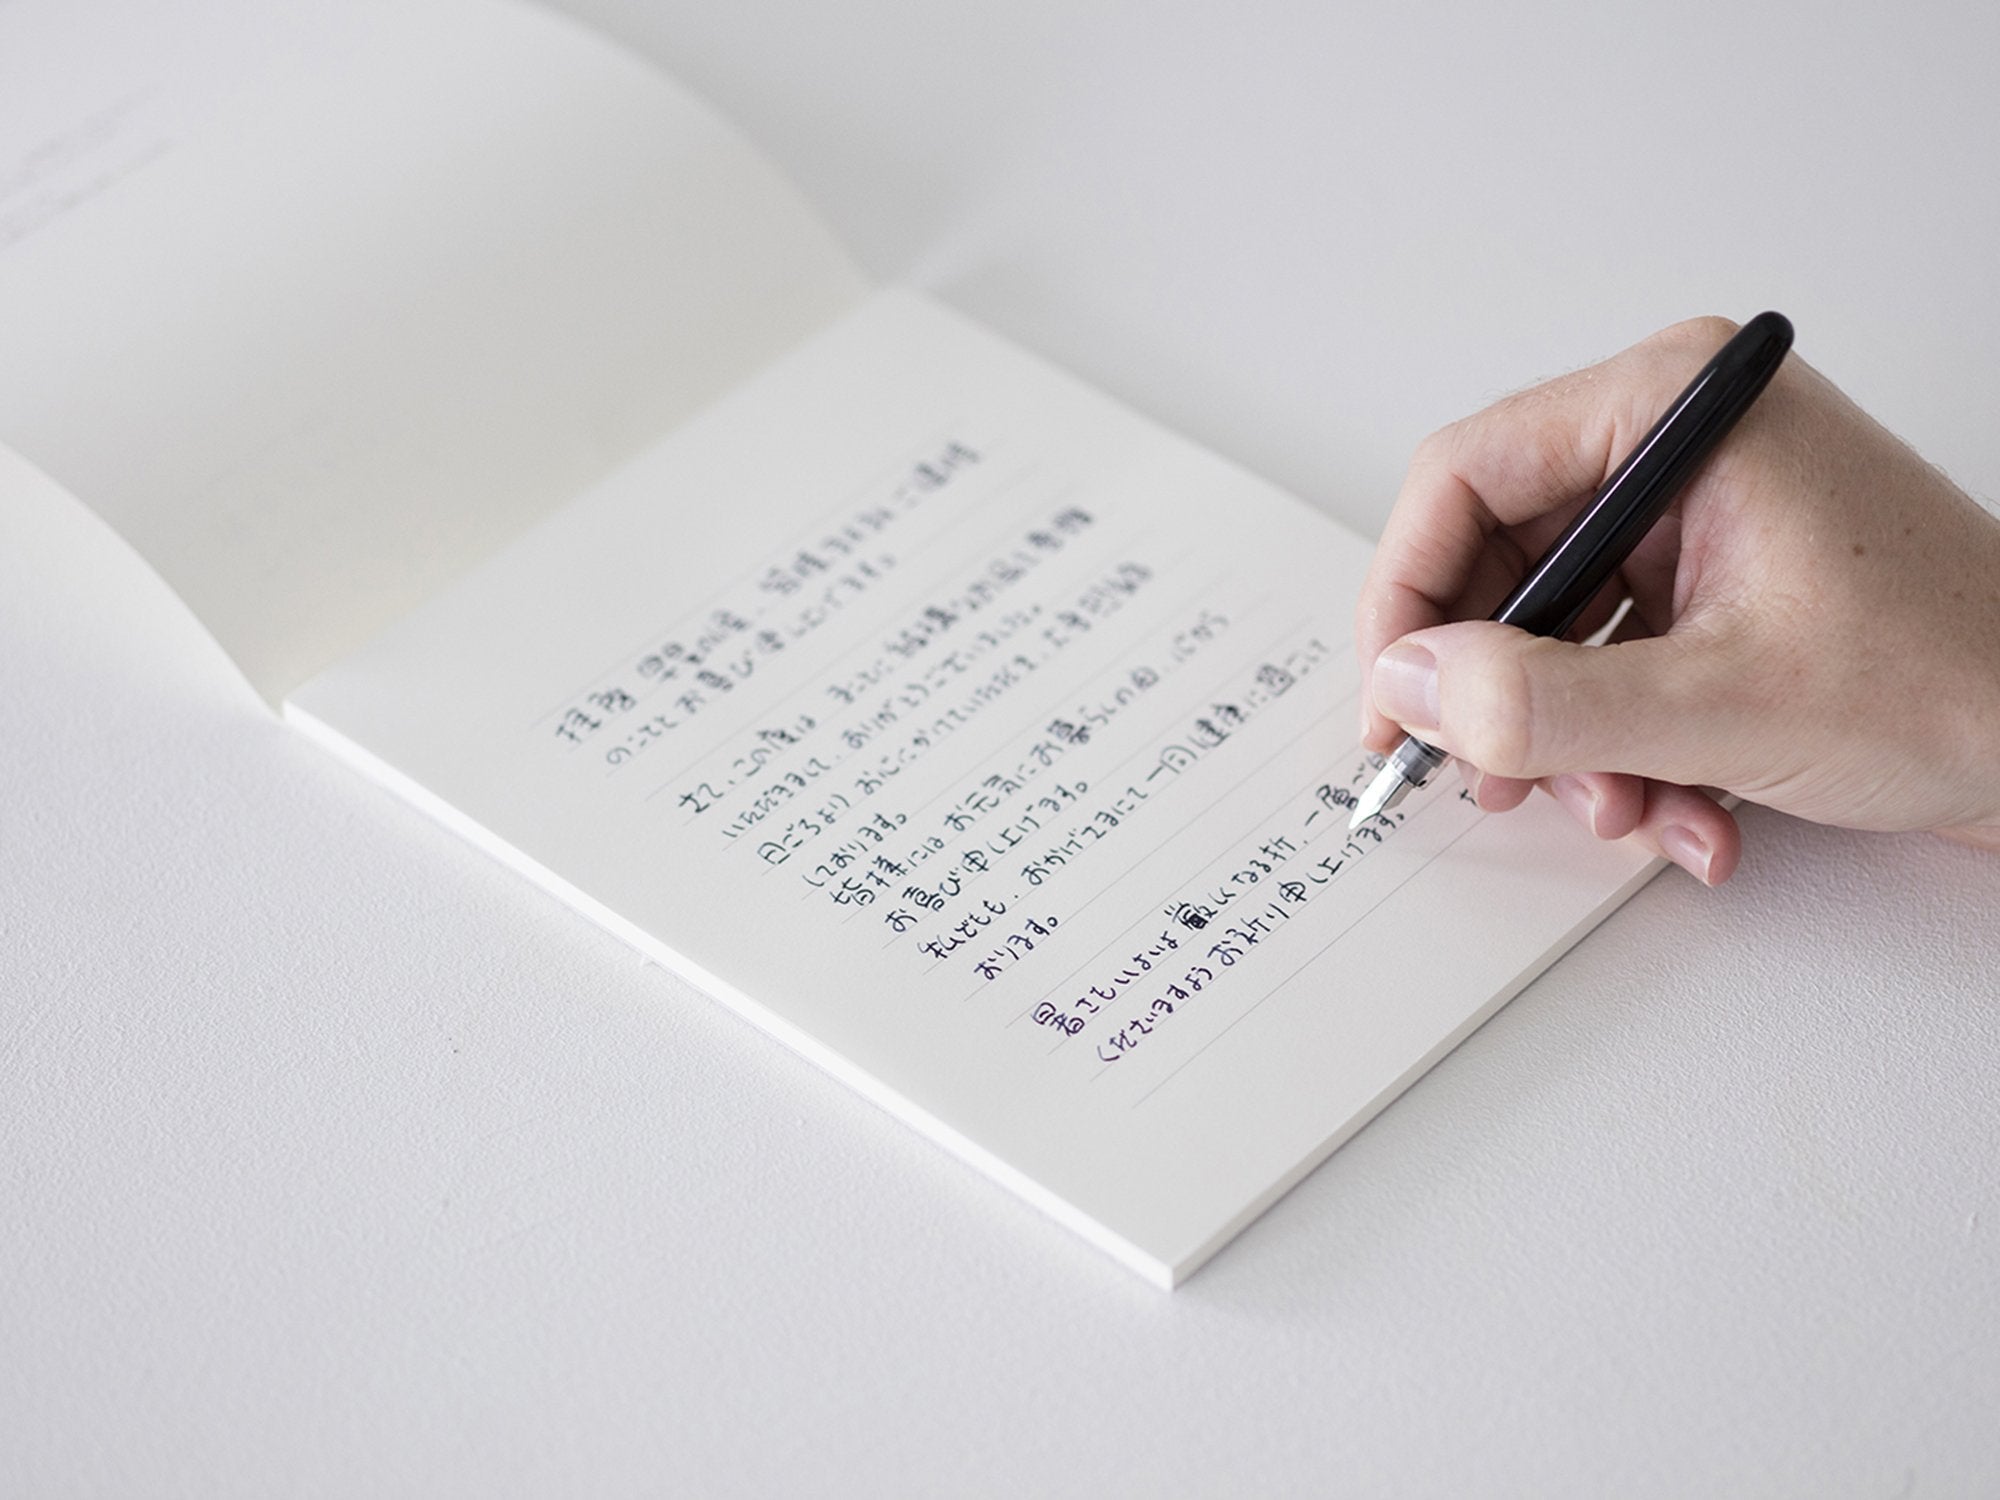 拝啓 早春の候、皆様ますますご清祥
のこととお喜び申し上げます。
さて、この度は まことに結構なお品を
いただきまして、ありがとうございました。
日ごろより お心にかけていただき、
しております。
皆様には お元気にお暮らしの由、心から
お喜び申し上げます。
私どもも、おかげさまにて 一同 健康に過ごして
おります。
暑さもいよいよ 厳しくなる折、一層ご
くださいますよう お祈り申し上げます。